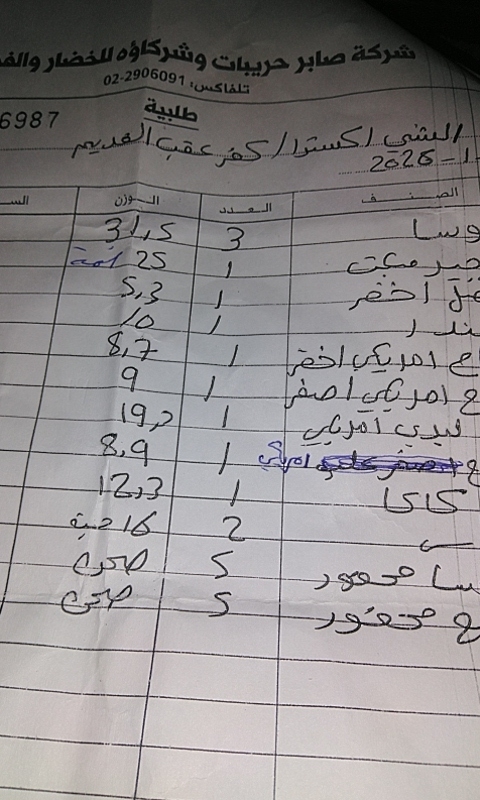 شركة صابر حريبات وشركاؤه للخضار والف
تلفاكس: 02-2906091
طلبية
6987
الشني اكسترا / كفر عقب القديم
1-2026
الصنف العدد الوزن الس
وسا 3 31,5
1 25
فل اخضر 1 5,3
ندرا 1 10
اح امريكي اخضر 1 8,7
ح امريكي اصفر 1 9
ليدي امريكي 1 19,2
ح امريكي 1 8,9
كاكا 1 12,3
س 2 16 حبة
سا محفور 5 صحن
ع محفور 5 صحن